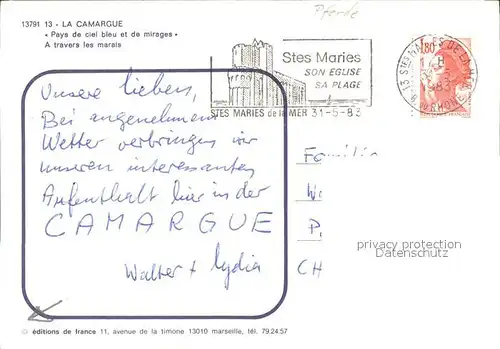 Pferde
13791 13 - LA CAMARGUE
« Pays de ciel bleu et de mirages »
A travers les marais
Stes Maries
SON EGLISE
SA PLAGE
STES MARIES de la MER 31-5-83
1,80
13 STES MARIES DE LA MER
H
1983
B. DU RHONE
Unsere lieben,
Bei angenehmem
Wetter verbringen wir
unseren interessanten
Aufenthalt hier in der
CAMARGUE
Walter + Lydia
Familie
W.
P.
CH
privacy protection
Datenschutz
© éditions de france 11, avenue de la timone 13010 marseille, tel. 79.24.57